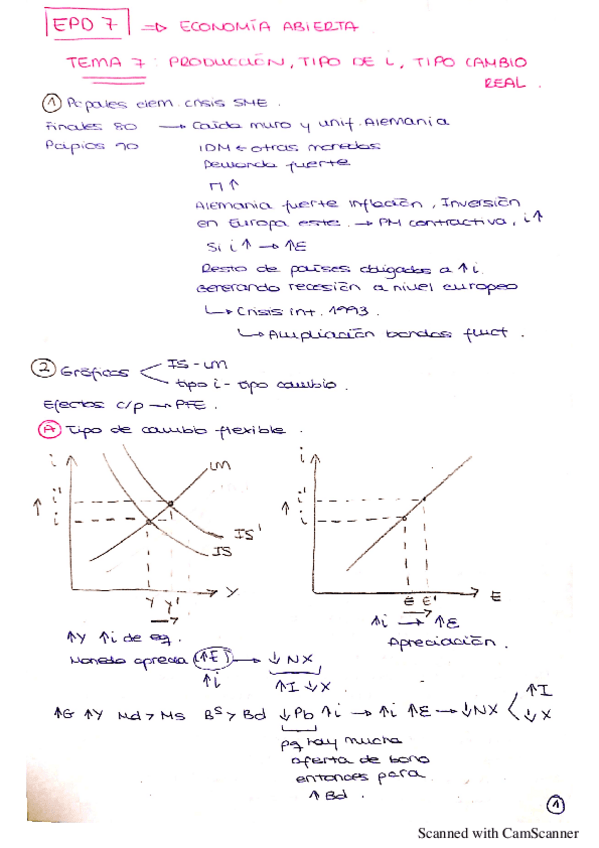 EPD 7 ⇒ ECONOMÍA ABIERTA
TEMA 7: PRODUCCIÓN, TIPO DE i, TIPO CAMBIO
REAL.
① Ppales elem. crisis SME.
Finales 80 → Caída muro y unif. Alemania
Pcipios 90 1DM ← otras monedas
Demanda fuerte
Π↑
Alemania fuerte inflación, Inversión
en Europa este. → PM contractiva, i↑
Si i↑ → ↑E
Resto de países obligados a ↑i.
Generando recesión a nivel europeo
↳ Crisis int. 1993.
↳ Ampliación bandas fluct.
② Gráficos IS-LM
tipo i - tipo cambio.
Efectos c/p → PFE.
Ⓐ Tipo de cambio flexible.
i LM i
↑ i' ↑ i'
i i
IS'
IS
Y Y' Y E E' E
↑Y ↑i de eq. ↑i → ↑E
Apreciación.
Moneda aprecia (↑E) → ↓NX
↑i ↑I ↓X
↑G ↑Y Md > Ms Bs > Bd ↓Pb ↑i → ↑i ↑E → ↓NX ↑I
↓X
pq hay mucha
oferta de bono
entonces para
↑Bd.
①
Scanned with CamScanner